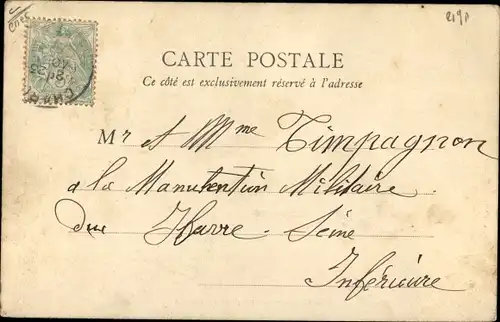 CARTE POSTALE
Ce côté est exclusivement réservé à l'adresse
Mr et Mme Timpagnon
a la Manutention Militaire
du Havre - Seine
Inférieure